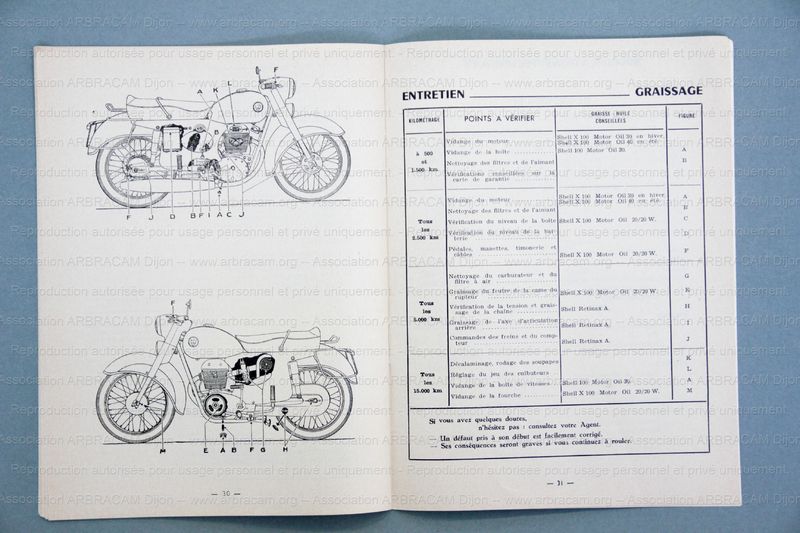 Reproduction autorisée pour usage personnel et privé uniquement. — Association ARBRACAM Dijon — www.arbracam.org
A K L F
B
F J D B F I A C J
F
M E A B F G H
— 30 —
ENTRETIEN GRAISSAGE
KILOMÉTRAGE POINTS A VÉRIFIER GRAISSE - HUILE CONSEILLÉES FIGURE
à 500 et 1.500 km
Vidange du moteur Shell X 100 Motor Oil 30 en hiver.
Shell X 100 Motor Oil 40 en été.
Vidange de la boîte Shell 100 Motor Oil 30. A
Nettoyage des filtres et de l'aimant B
Vérifications conseillées sur la
carte de garantie
Tous les 2.500 km
Vidange du moteur Shell X 100 Motor Oil 30 en hiver. A
Shell X 100 Motor Oil 40 en été.
Nettoyage des filtres et de l'aimant B
Vérification du niveau de la boîte Shell X 100 Motor Oil 20/20 W. C
Vérification du niveau de la bat-
terie D
Pédales, manettes, timonerie et
câbles Shell X 100 Motor Oil 20/20 W. F
Tous les 5.000 km
Nettoyage du carburateur et du
filtre à air G
Graissage du feutre de la came du
rupteur Shell X 100 Motor Oil 20/20 W. E
Vérification de la tension et grais-
sage de la chaîne Shell Retinax A. H
Graissage de l'axe d'articulation
arrière Shell Retinax A. I
Commandes des freins et du comp-
teur Shell Retinax A. J
Tous les 15.000 km
Décalaminage, rodage des soupapes K
Réglage du jeu des culbuteurs L
Vidange de la boîte de vitesses Shell 100 Motor Oil 30. A
Vidange de la fourche Shell X 100 Motor Oil 20/20 W. M
Si vous avez quelques doutes,
n'hésitez pas : consultez votre Agent.
— Un défaut pris à son début est facilement corrigé.
— Ses conséquences seront graves si vous continuez à rouler.
— 31 —